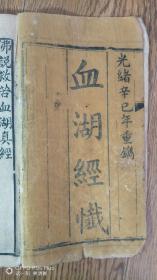 光緒辛巳年重鐫
血湖經懺
佛說救苦血湖真經